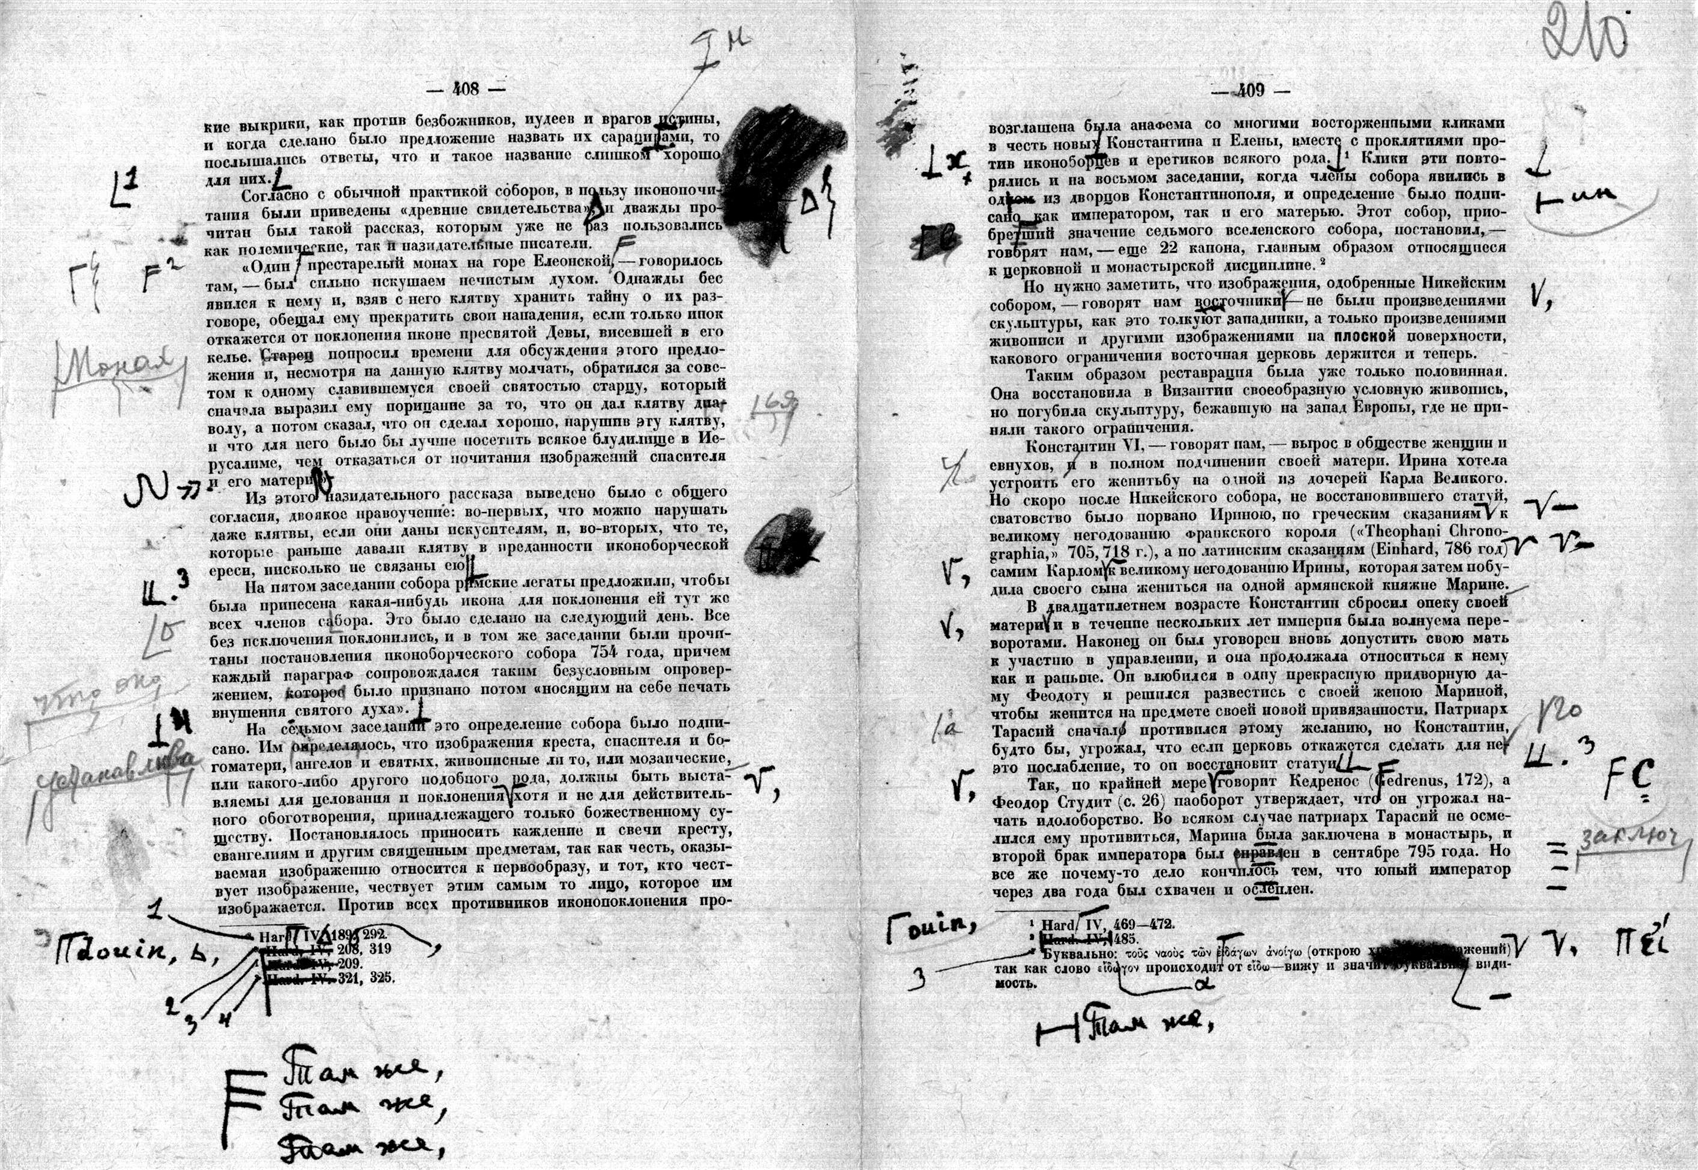 210
— 408 —
кие выкрики, как против безбожников, иудеев и врагов истины,
и когда сделано было предложение назвать их сарацирами, то
послышались ответы, что и такое название слишком хорошо
для них.
Согласно с обычной практикой соборов, в пользу иконопочи-
тания были приведены «древние свидетельства» и дважды про-
читан был такой рассказ, которым уже не раз пользовались
как полемические, так и назидательные писатели.
«Один престарелый монах на горе Елеонской, — говорилось
там, — был сильно искушаем нечистым духом. Однажды бес
явился к нему и, взяв с него клятву хранить тайну о их раз-
говоре, обещал ему прекратить свои нападения, если только инок
откажется от поклонения иконе пресвятой Девы, висевшей в его
келье. Старец попросил времени для обсуждения этого предло-
Монах
жения и, несмотря на данную клятву молчать, обратился за сове-
том к одному славившемуся своей святостью старцу, который
сначала выразил ему порицание за то, что он дал клятву диа-
волу, а потом сказал, что он сделал хорошо, нарушив эту клятву,
и что для него было бы лучше посетить всякое блудилище в Ие-
русалиме, чем отказаться от почитания изображений спасителя
и его матери
Из этого назидательного рассказа выведено было с общего
согласия, двоякое нравоучение: во-первых, что можно нарушать
даже клятвы, если они даны искусителям, и, во-вторых, что те,
которые раньше давали клятву в преданности иконоборческой
ереси, нисколько не связаны ею
На пятом заседании собора римские легаты предложили, чтобы
была принесена какая-нибудь икона для поклонения ей тут же
всех членов сабора. Это было сделано на следующий день. Все
без исключения поклонились, и в том же заседании были прочи-
таны постановления иконоборческого собора 754 года, причем
каждый параграф сопровождался таким безусловным опровер-
жением, которое было признано потом «носящим на себе печать
что оно
внушения святого духа».
На седьмом заседании это определение собора было подпи-
сано. Им определялось, что изображения креста, спасителя и бо-
устанавлива
гоматери, ангелов и святых, живописные ли то, или мозаические,
или какого-либо другого подобного рода, должны быть выста-
вляемы для целования и поклонения хотя и не для действитель-
ного обоготворения, принадлежащего только божественному су-
ществу. Постановлялось приносить каждение и свечи кресту,
евангелиям и другим священным предметам, так как честь, оказы-
ваемая изображению относится к первообразу, и тот, кто чест-
вует изображение, чествует этим самым то лицо, которое им
изображается. Против всех противников иконопоклонения про-
Hard IV 189, 292.
Hard. IV. 208, 319
Hard. IV. 209.
Hard. IV. 321, 325.
1
2
3
4
Там же,
Там же,
Там же,
— 409 —
возглашена была анафема со многими восторженными кликами
в честь новых Константина и Елены, вместе с проклятиями про-
тив иконоборцев и еретиков всякого рода.¹ Клики эти повто-
рялись и на восьмом заседании, когда члены собора явились в
одном из дворцов Константинополя, и определение было подпи-
сано как императором, так и его матерью. Этот собор, прио-
бретший значение седьмого вселенского собора, постановил, —
говорят нам, — еще 22 канона, главным образом относящиеся
к церковной и монастырской дисциплине.²
Но нужно заметить, что изображения, одобренные Никейским
собором, — говорят нам восточники — не были произведениями
скульптуры, как это толкуют западники, а только произведениями
живописи и другими изображениями на плоской поверхности,
какового ограничения восточная церковь держится и теперь.
Таким образом реставрация была уже только половинная.
Она восстановила в Византии своеобразную условную живопись,
но погубила скульптуру, бежавшую на запад Европы, где не при-
няли такого ограничения.
Константин VI, — говорят нам, — вырос в обществе женщин и
евнухов, и в полном подчинении своей матери. Ирина хотела
устроить его женитьбу на одной из дочерей Карла Великого.
Но скоро после Никейского собора, не восстановившего статуй,
сватовство было порвано Ириною, по греческим сказаниям к
великому негодованию франкского короля («Theophani Chrono-
graphia,» 705, 718 г.), а по латинским сказаниям (Einhard, 786 год)
самим Карлом к великому негодованию Ирины, которая затем побу-
дила своего сына жениться на одной армянской княжне Марине.
В двадцатилетнем возрасте Константин сбросил опеку своей
матери и в течение нескольких лет империя была волнуема пере-
воротами. Наконец он был уговорен вновь допустить свою мать
к участию в управлении, и она продолжала относиться к нему
как и раньше. Он влюбился в одну прекрасную придворную да-
му Феодоту и решился развестись с своей женою Мариной,
чтобы женится на предмете своей новой привязанности. Патриарх
Тарасий сначала противился этому желанию, но Константин,
будто бы, угрожал, что если церковь откажется сделать для не
это послабление, то он восстановит статуи
Так, по крайней мере говорит Кедренос (Cedrenus, 172), а
Феодор Студит (с. 26) наоборот утверждает, что он угрожал на-
чать идолоборство. Во всяком случае патриарх Тарасий не осме-
лился ему противиться, Марина была заключена в монастырь, и
заключ
второй брак императора был справлен в сентябре 795 года. Но
все же почему-то дело кончилось тем, что юный император
через два года был схвачен и ослеплен.
¹ Hard IV, 469—472.
² Hard. IV, 485.
Буквально: τοὺς ναοὺς τῶν (открою
так как слово происходит от εἴδω — вижу и значит буквально види-
мость.
3
Там же,